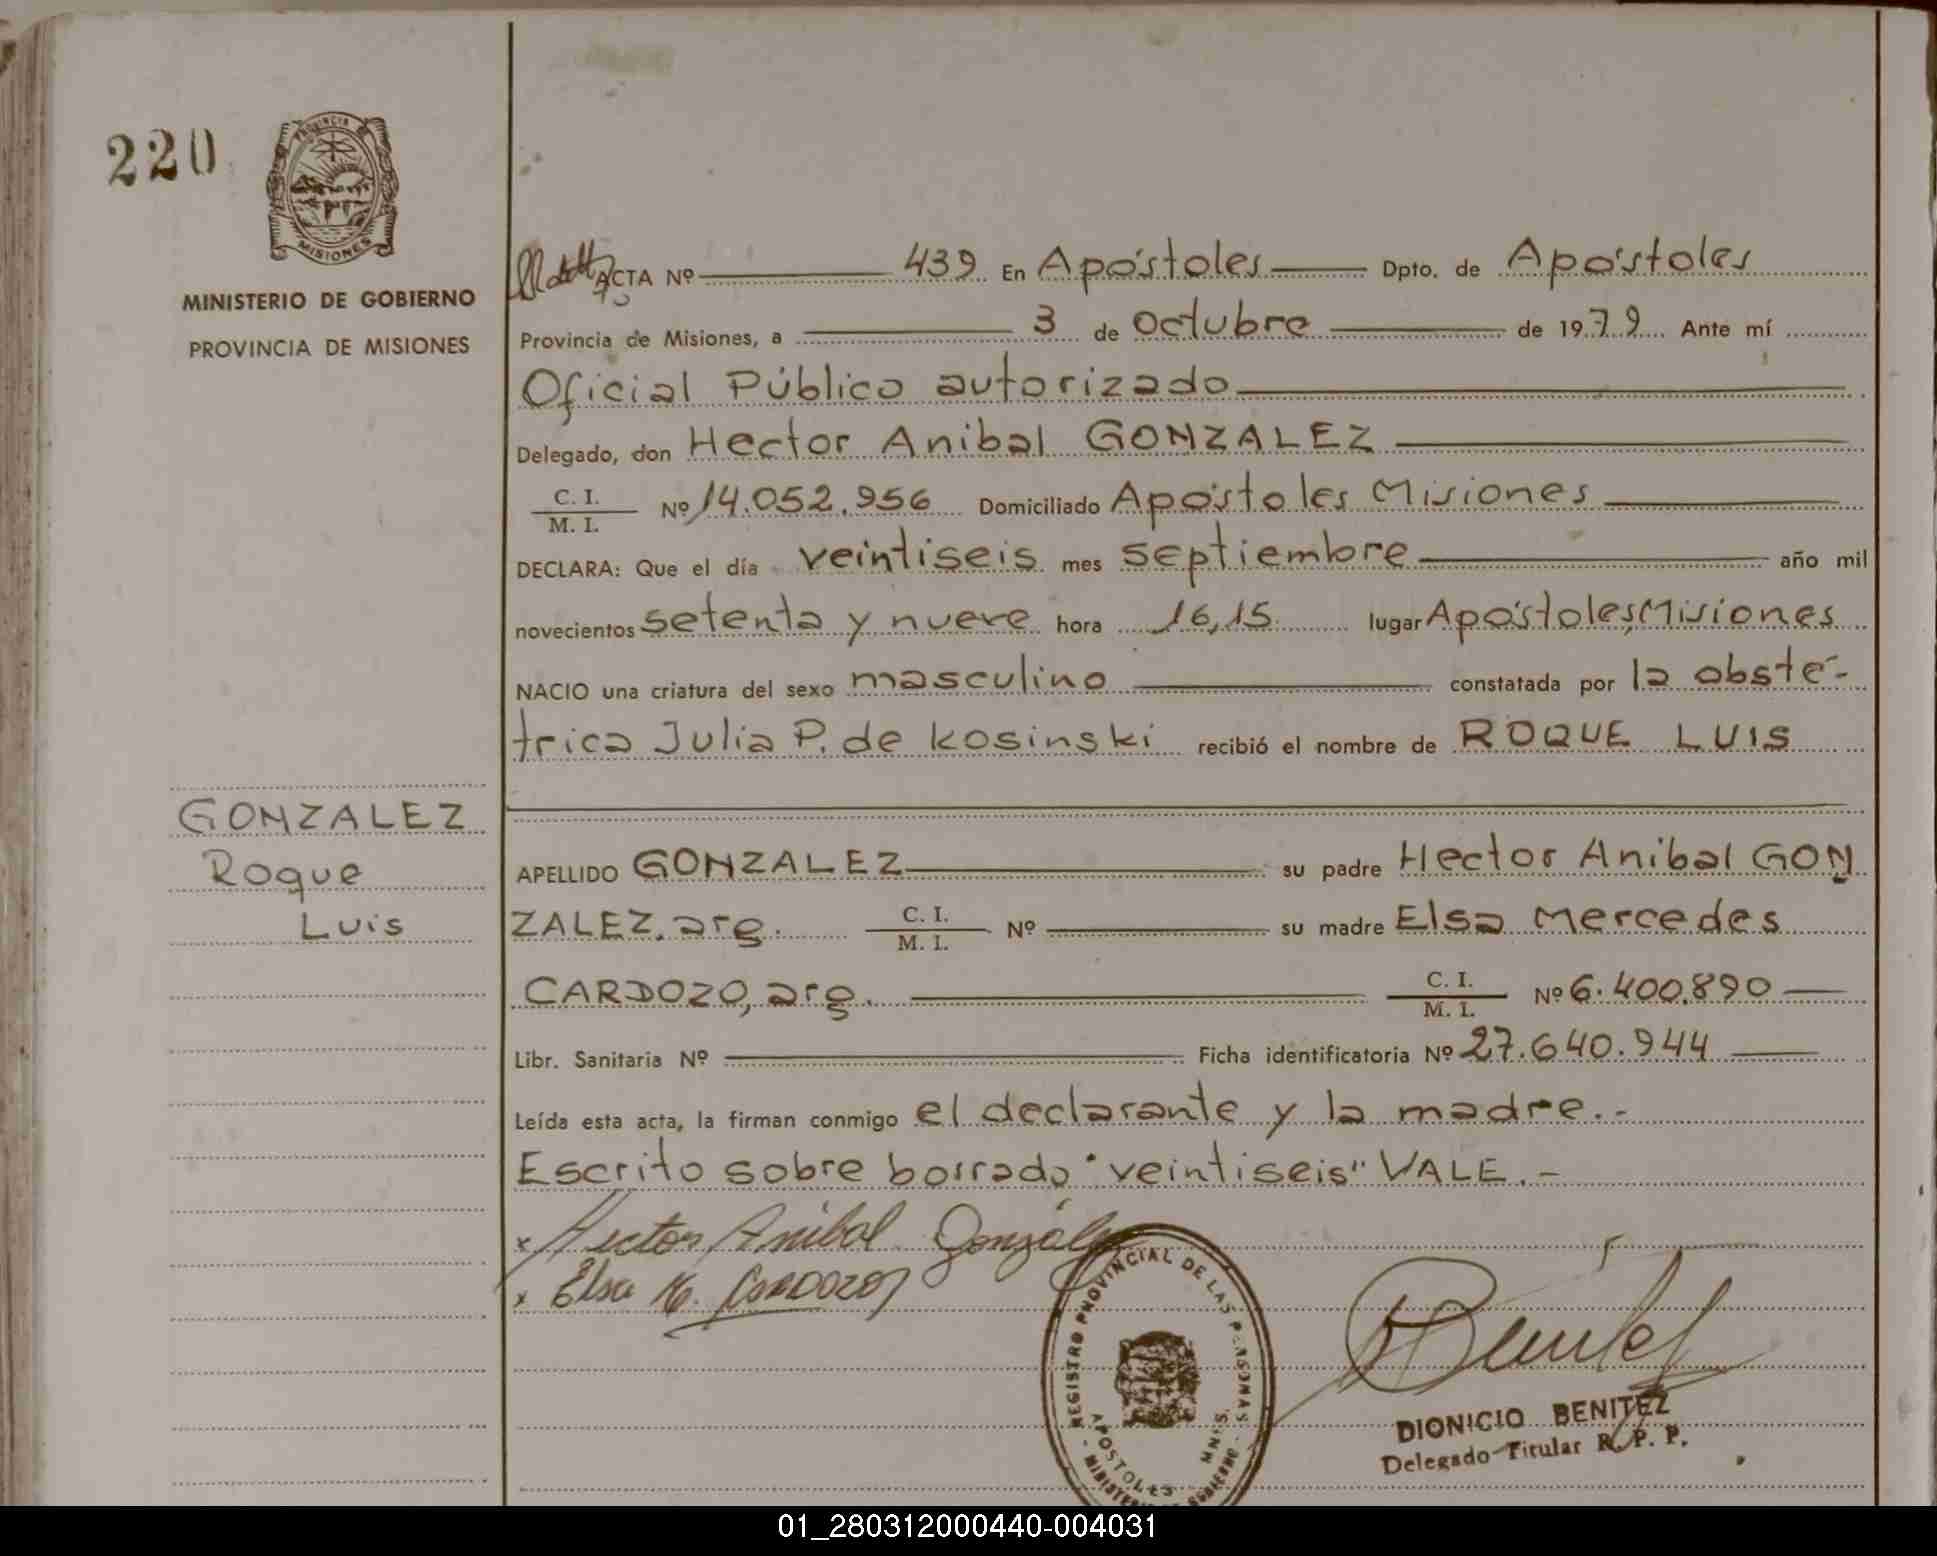 220
PROVINCIA
MISIONES
MINISTERIO DE GOBIERNO
PROVINCIA DE MISIONES
ACTA Nº 439 En Apóstoles Dpto. de Apóstoles
Provincia de Misiones, a 3 de octubre de 1979 Ante mí
Oficial Público autorizado
Delegado, don Hector Anibal GONZALEZ
C. I.
M. I. Nº 14.052.956 Domiciliado Apóstoles Misiones
DECLARA: Que el día veintiseis mes septiembre año mil
novecientos setenta y nueve hora 16,15 lugar Apóstoles, Misiones
NACIO una criatura del sexo masculino constatada por la obsté-
trica Julia P. de Kosinski recibió el nombre de ROQUE LUIS
GONZALEZ
Roque
Luis
APELLIDO GONZALEZ su padre Hector Anibal GON
ZALEZ, arg. C. I. M. I. Nº su madre Elsa Mercedes
CARDOZO, arg. C. I. M. I. Nº 6.400.890
Libr. Sanitaria Nº Ficha identificatoria Nº 27.640.944
Leída esta acta, la firman conmigo el declarante y la madre.-
Escrito sobre borrado "veintiseis" VALE.-
x Hector Anibal Gonzalez
x Elsa M. Cardozo
REGISTRO PROVINCIAL DE LAS PERSONAS
APOSTOLES MNIS.
MINISTERIO DE GOBIERNO
Benitez
DIONICIO BENITEZ
Delegado Titular R. P. P.
01_280312000440-004031